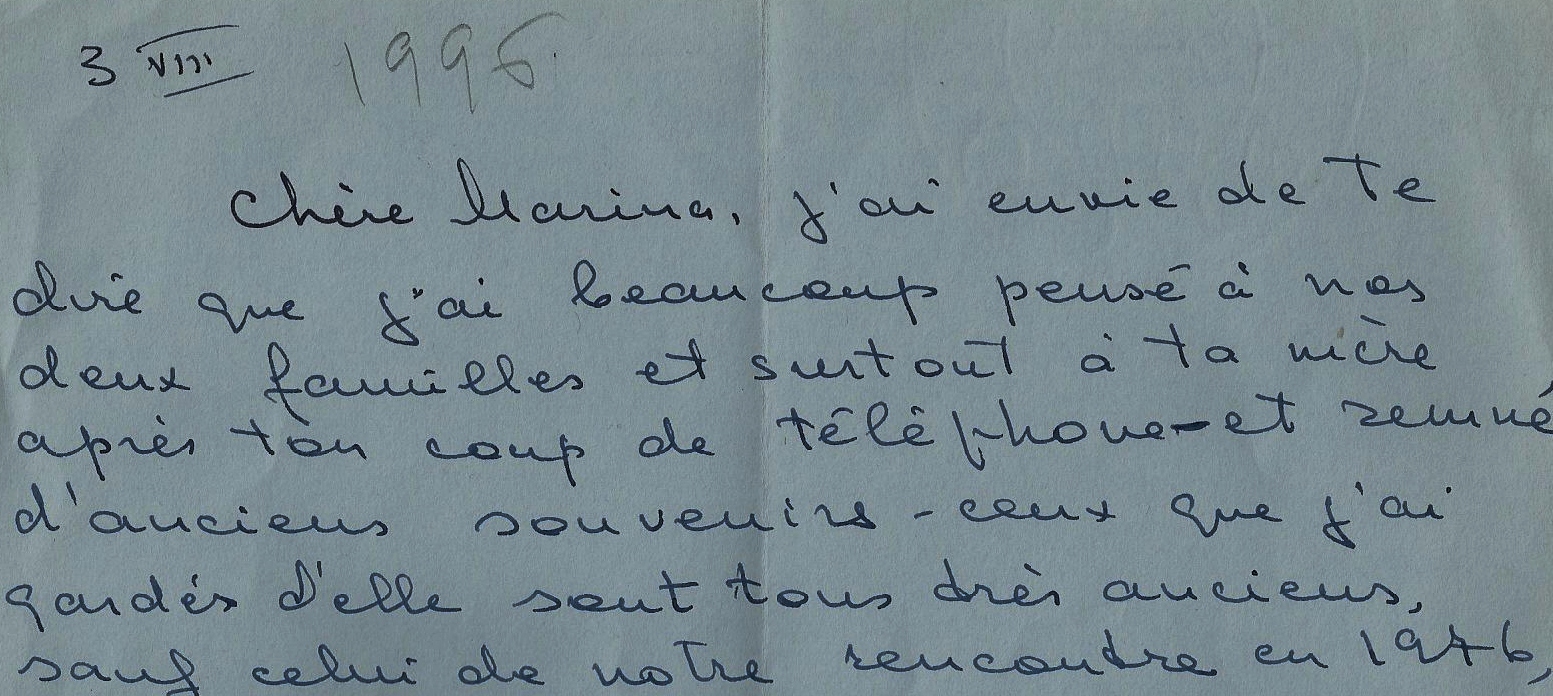 3 VIII 1996.
Chère Marina, j'ai envie de te
dire que j'ai beaucoup pensé à nos
deux familles et surtout à ta mère
après ton coup de téléphone - et remué
d'anciens souvenirs - ceux que j'ai
gardés d'elle sont tous très anciens,
sauf celui de notre rencontre en 1976,